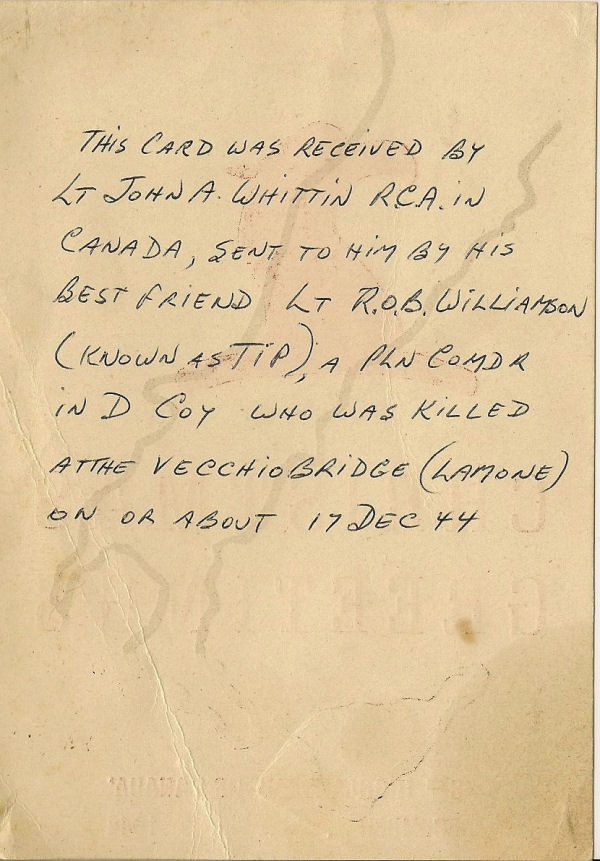 THIS CARD WAS RECEIVED BY
LT JOHN A. WHITTIN R.C.A. IN
CANADA, SENT TO HIM BY HIS
BEST FRIEND LT R.O.B. WILLIAMSON
(KNOWN AS TIP), A PLN COMDR
IN D COY WHO WAS KILLED
AT THE VECCHIO BRIDGE (LAMONE)
ON OR ABOUT 17 DEC 44
GREETINGS